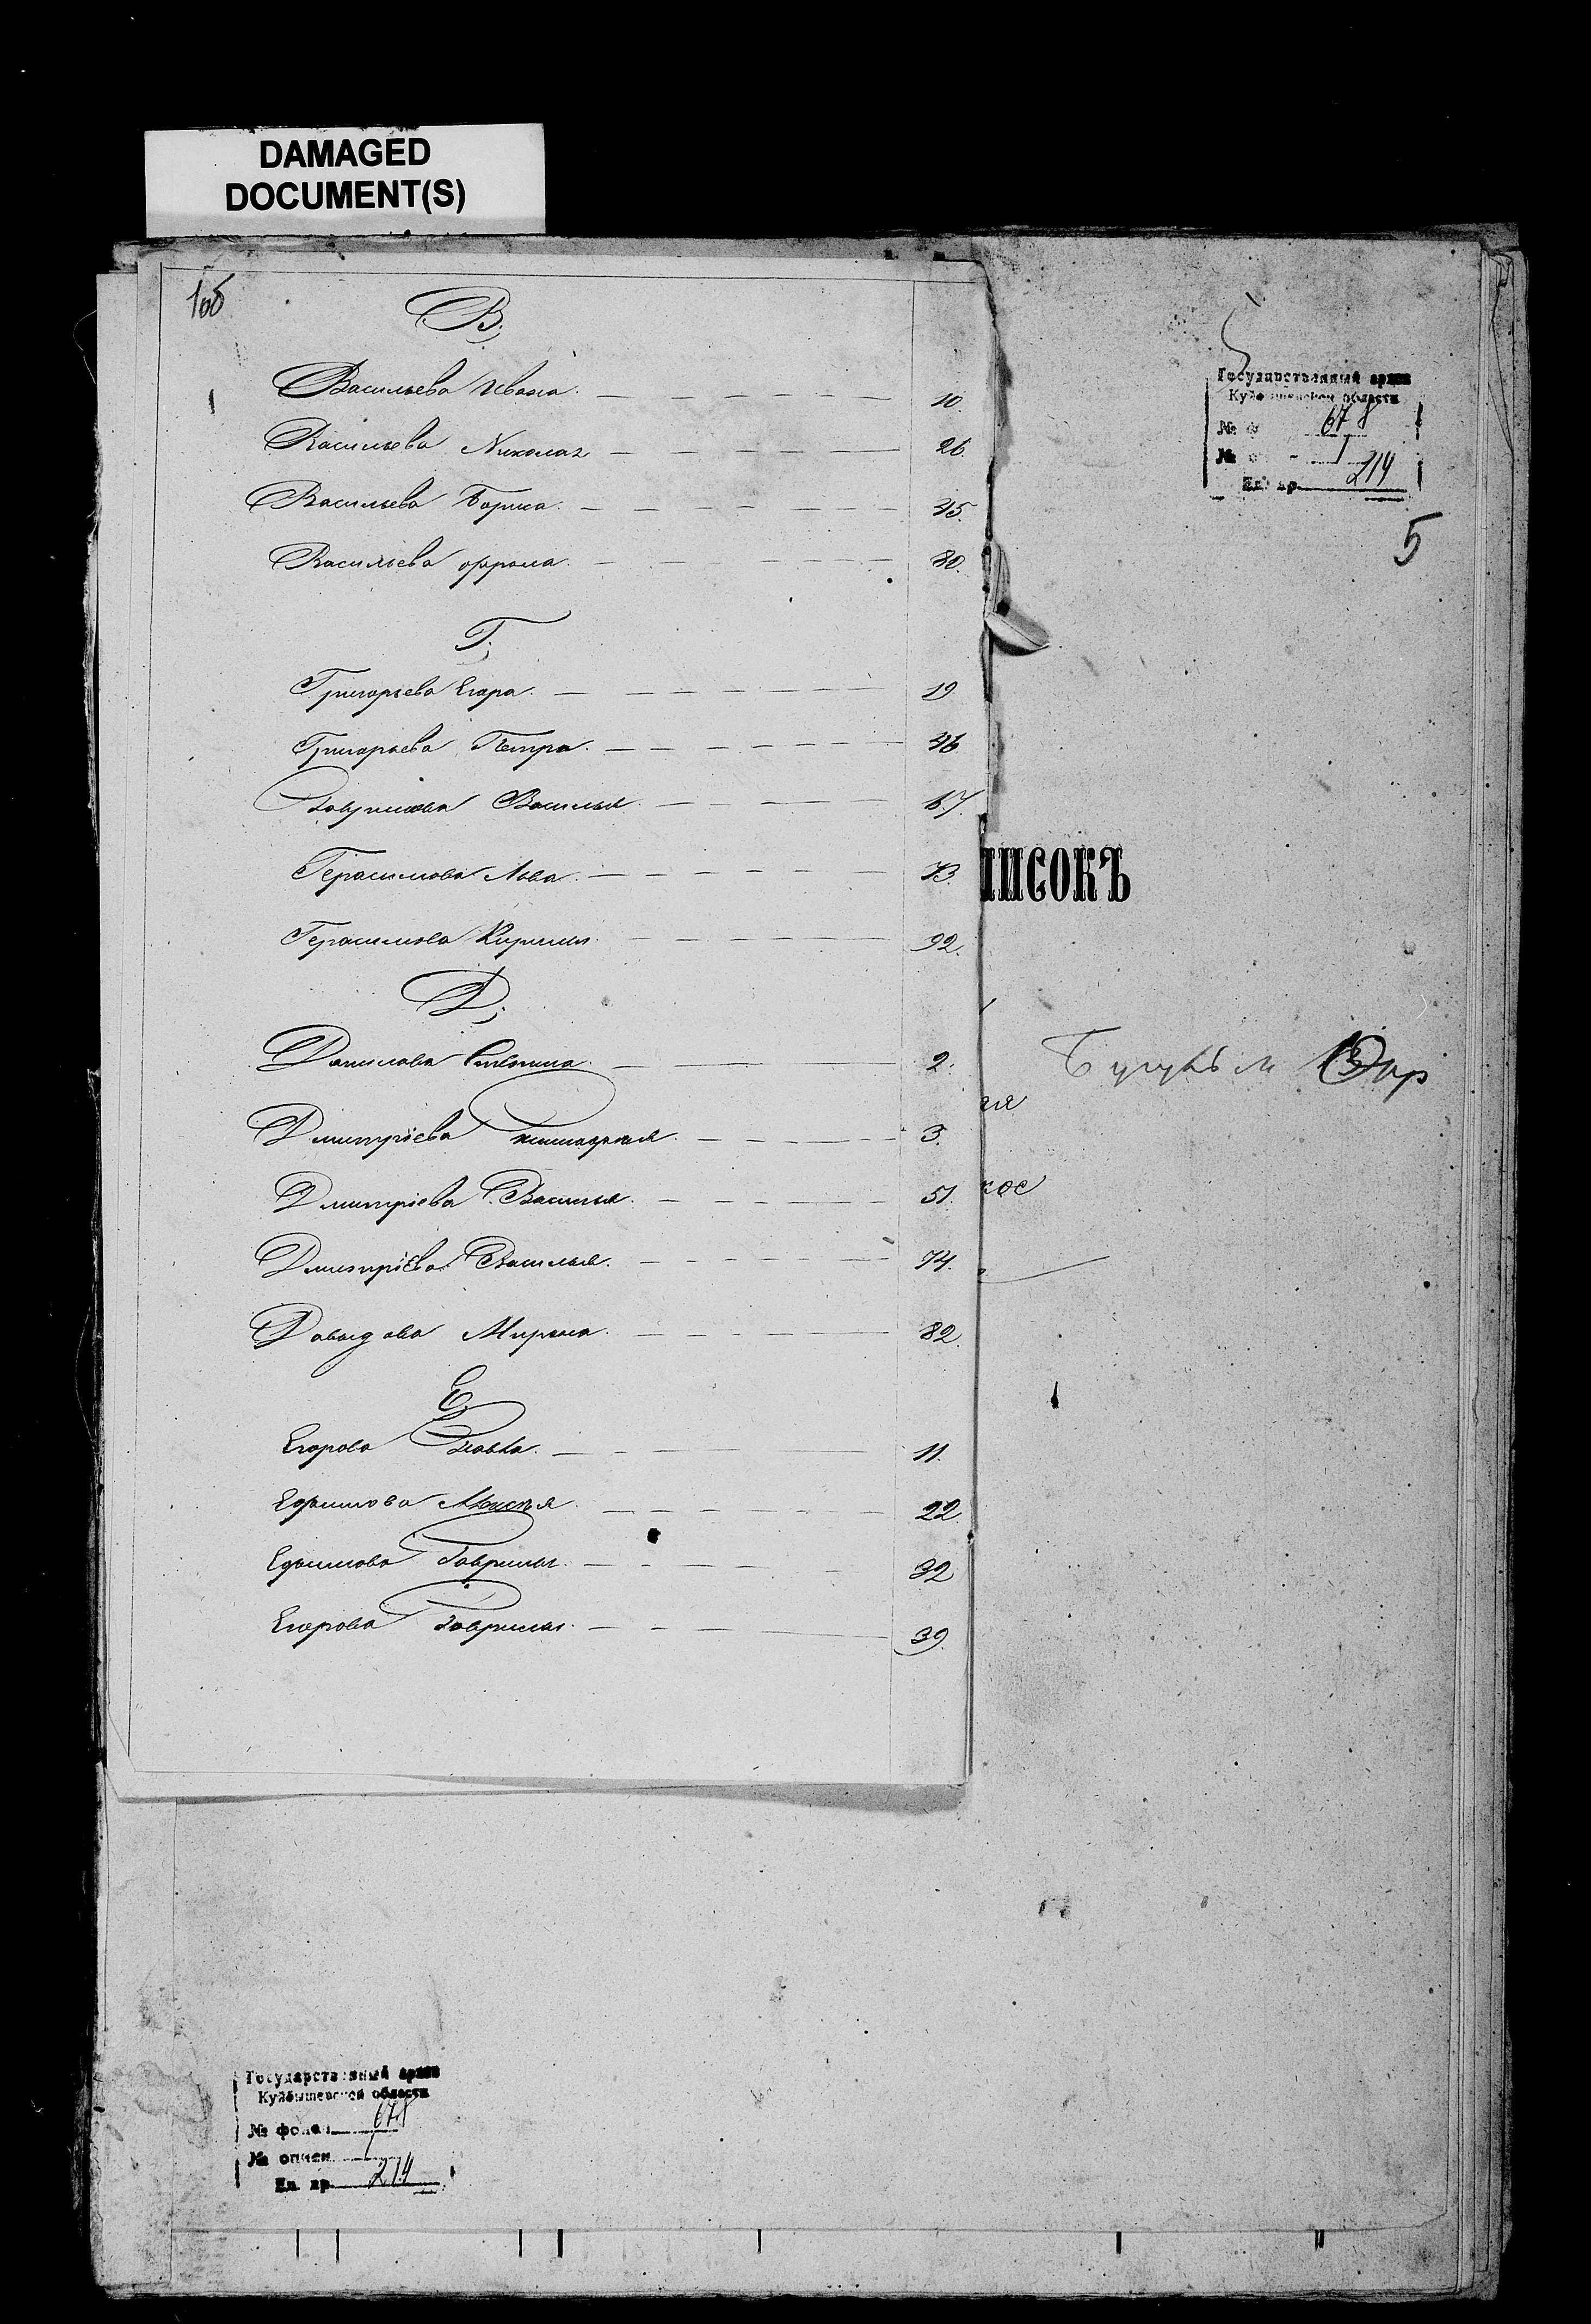 DAMAGED
DOCUMENT(S)
В;
Васильева Ивана. 10.
Васильева Николая 26.
Васильева Бориса. 45.
Васильева Фрола. 80.
Г;
Григорьева Егора. 19
Григорьева Петра. 46
Гаврилова Василья 67.
Герасимова Льва. 73.
Герасимова Кирилы. 92.
Д;
Данилова 2.
Дмитріева Тимофея. 3.
Дмитріева Василья. 51.
Дмитріева Василья. 74.
Давыдова Мирона. 82.
Е;
Егорова Павла. 11.
Ефимова 22.
Ефимова Гаврилы. 32
Егорова Гаврилы. 39.
Государственный архив
Куйбышевской области
№ ф 678
№ о 1
Ед. хр. 214
5
ПИСОКЪ
ая
кое
Государственный архив
Куйбышевской области
№ фонд 678
№ описи 1
Ед. хр. 214